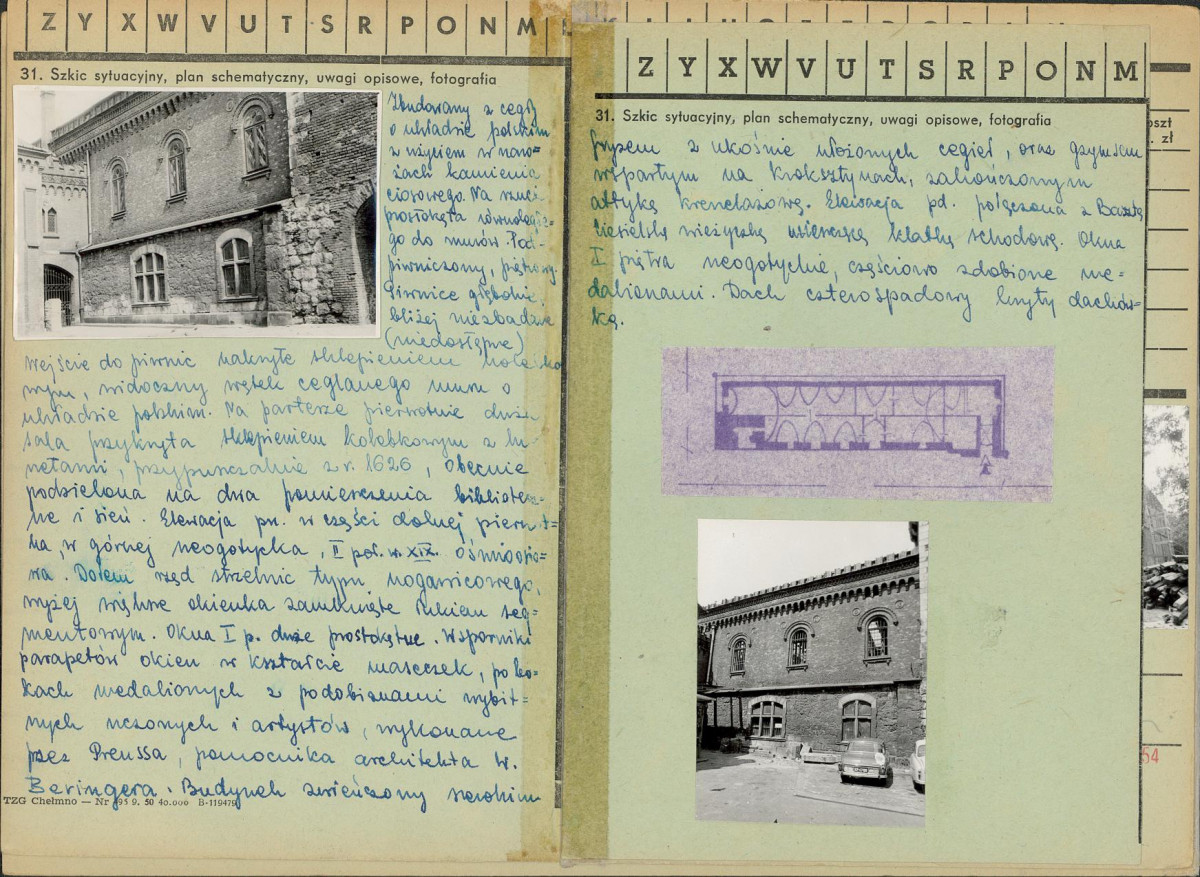 Z Y X W V U T S R P O N M
31. Szkic sytuacyjny, plan schematyczny, uwagi opisowe, fotografia
Zbudowany z cegły
o układzie polskim
z użyciem w naro=
żach kamienia
ciosowego. Na rzucie
prostokąta równoległe=
go do murów. Pod=
piwniczony, piętrowy.
Piwnice głębokie,
bliżej niezbadane
(niedostępne)
wejście do piwnic nakryte sklepieniem kolebko
wym, widoczny wątek ceglanego muru o
układzie polskim. Na parterze pierwotnie duża
sala przykryta sklepieniem kolebkowym z lu=
netami, przypuszczalnie z r. 1626, obecnie
podzielona na dwa pomieszczenia bibliotecz=
ne i sień. Elewacja pn. w części dolnej pierwot=
na, w górnej neogotycka, II poł. w. XIX. ośmioosio=
wa. Dołem rząd strzelnic typu nogawicowego,
wyżej wąskie okienka zamknięte łukiem seg=
mentowym. Okna I p. duże prostokątne. Wsporniki
parapetów okien w kształcie maseczek, po bo=
kach medalionych z podobiznami wybit=
nych uczonych i artystów, wykonane
przez Preussa, pomocnika architekta W.
Beringera. Budynek zwieńczony szerokim
TZG Chełmno — Nr 495 9. 50 40.000 B-119479
Z Y X W V U T S R P O N M
31. Szkic sytuacyjny, plan schematyczny, uwagi opisowe, fotografia
fryzem z ukośnie ułożonych cegieł, oraz gzymsem
wspartym na kroksztynach, zakończonym
attyką krenelażową. Elewacja pd. połączona z Basztą
Ciesielską wieżyczką mieszczącą klatkę schodową. Okna
I piętra neogotyckie, częściowo zdobione me=
dalionami. Dach czterospadowy kryty dachów=
ką.
oszt
. zł
54